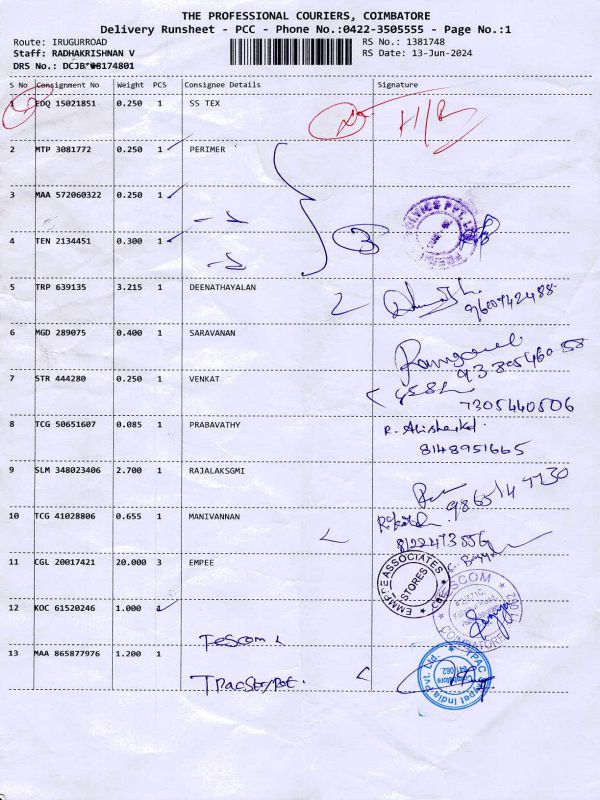 THE PROFESSIONAL COURIERS, COIMBATORE
Delivery Runsheet - PCC - Phone No.:0422-3505555 - Page No.:1
Route: IRUGURROAD
RS No.: 1381748
Staff: RADHAKRISHNAN V
RS Date: 13-Jun-2024
DRS No.:
S No Consignment No Weight PCS Consignee Details Signature
1 EDQ 15021851 0.250 1 SS TEX
H/B
2 MTP 3081772 0.250 1 PERIMER
3 MAA 572060322 0.250 1
4 TEN 2134451 0.300 1
3
5 TRP 639135 3.215 1 DEENATHAYALAN
9600942488
6 MGD 289075 0.400 1 SARAVANAN
7 STR 444280 0.250 1 VENKAT
7305440506
8 TCG 50651607 0.085 1 PRABAVATHY
8148951665
9 SLM 348023406 2.700 1 RAJALAKSGMI
10 TCG 41028806 0.655 1 MANIVANNAN
8122473556
11 CGL 20017421 20.000 3 EMPEE
ASSOCIATES
STORES
12 KOC 61520246 1.000
Tescom
COIMBATORE
13 MAA 865877976 1.200 1